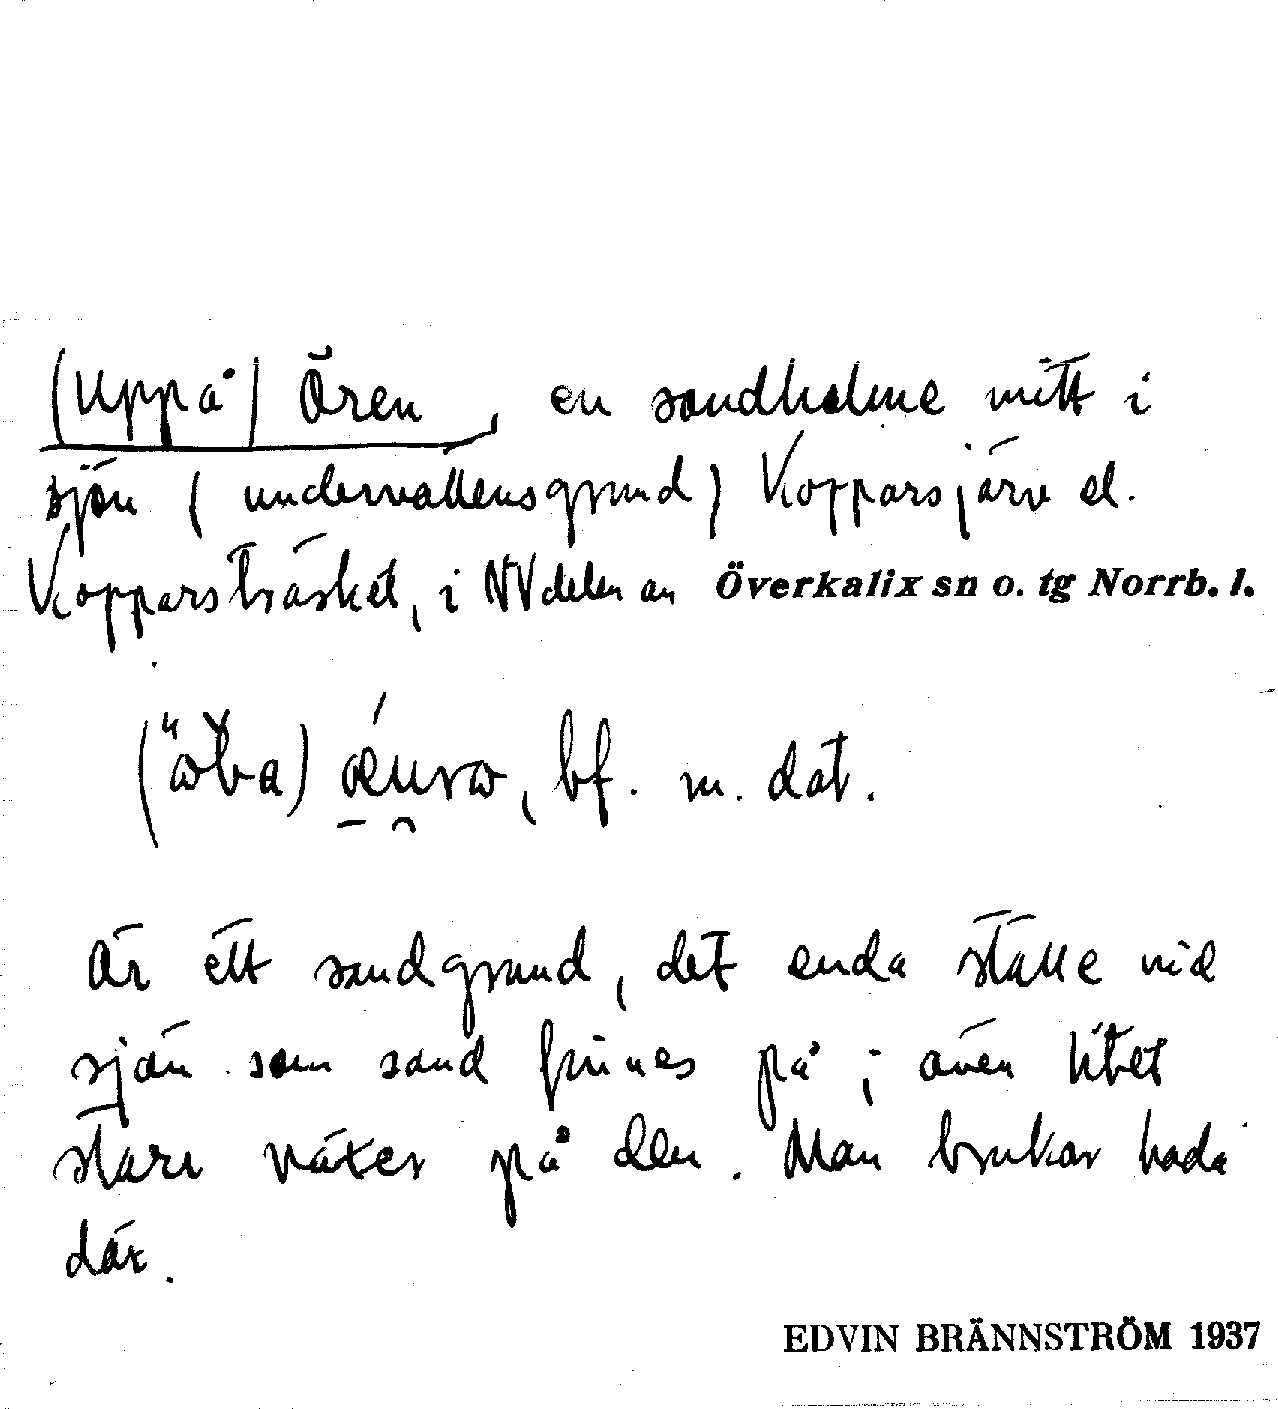 (Uppå) Ören, en sandholme mitt i
sjön (undervattensgrund) Kopparsjärv el.
Kopparsträsket, i NV delen av Överkalix sn o. tg Norrb. l.
bf. m. dat.
Är ett sandgrund, det enda ställe vid
sjön som sand finnes på; även litet
starr växer på den. Man brukar bada
där.
EDVIN BRÄNNSTRÖM 1937